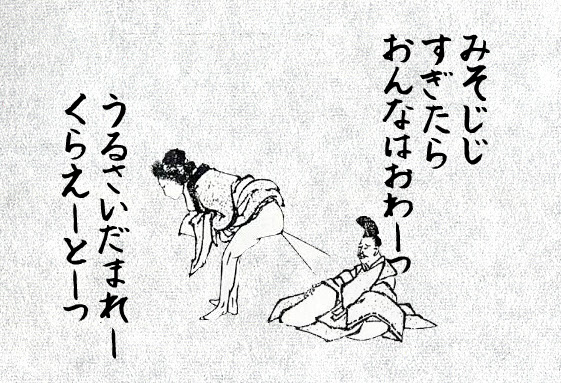 みそじじ
すぎたら
おんなはおわーっ
うるさいだまれー
くらえーとーっ